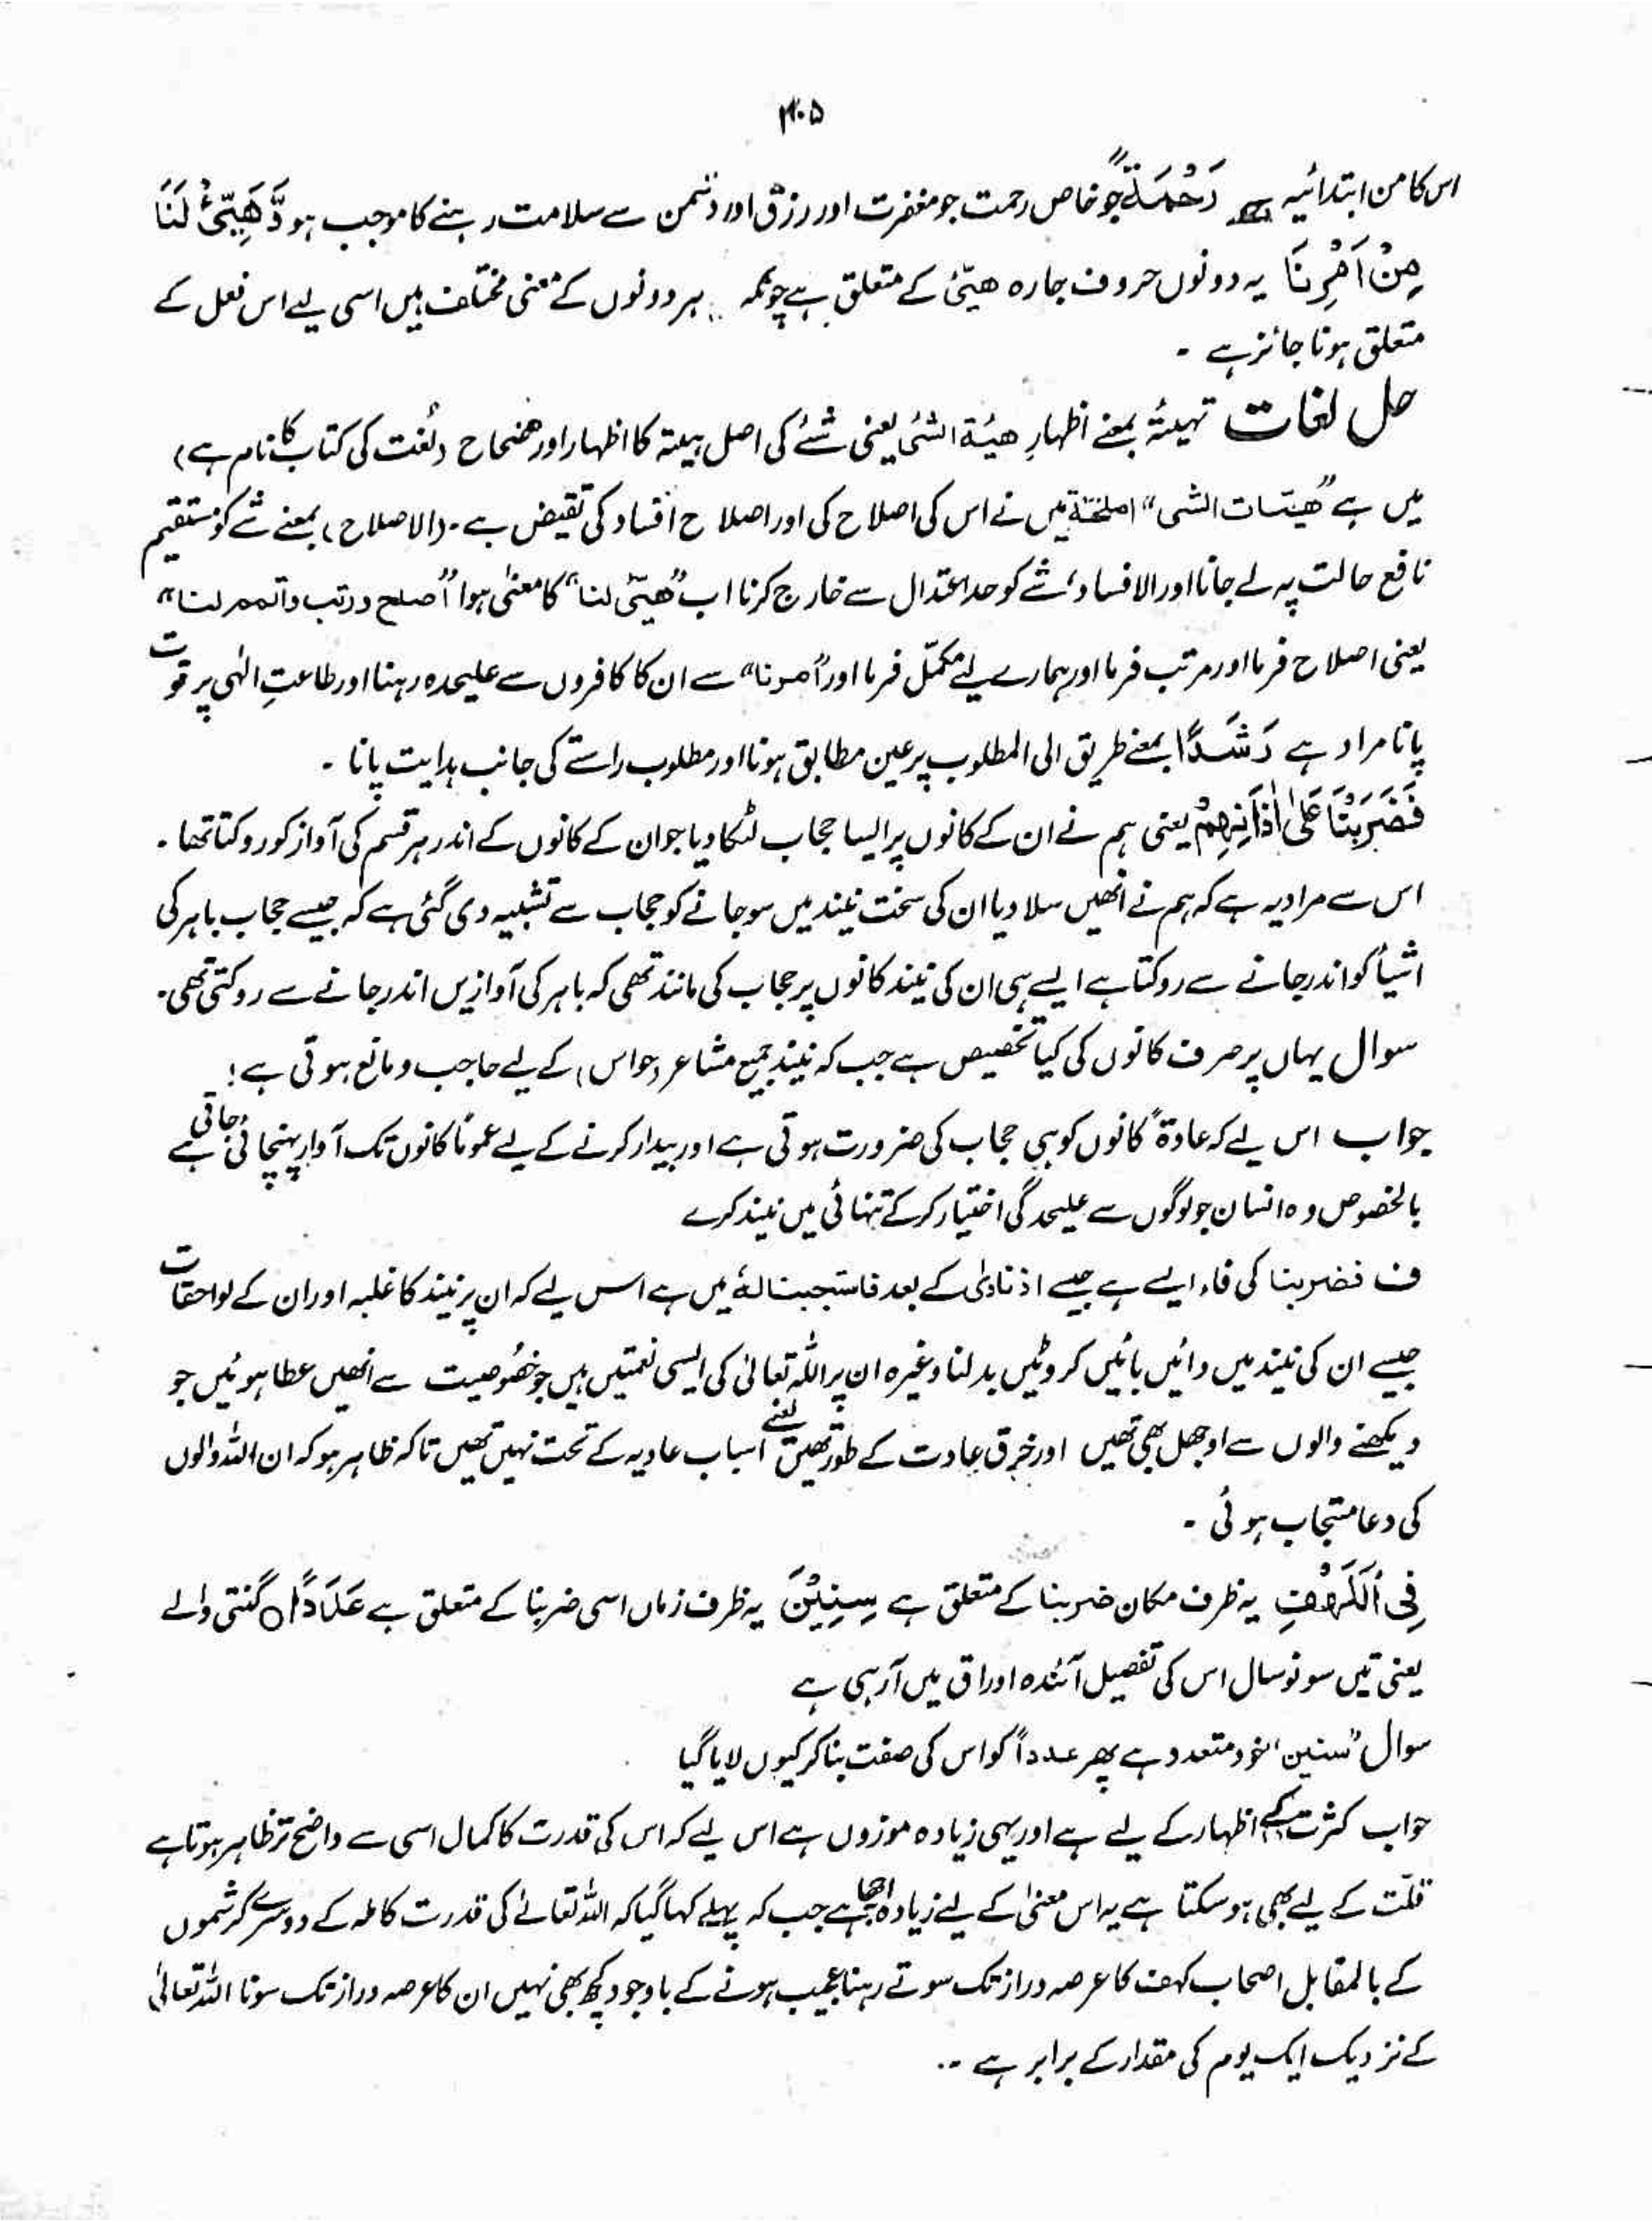 ۳۰۵
اس کا من ابتدائیہ ہے رَحْمَةً جو خاص رحمت جو مغفرت اور رزق اور دشمن سے سلامت رہنے کا موجب ہو وَّهَيِّئْ لَنَا
مِنْ اَمْرِنَا یہ دونوں حروف جارہ ھیّئ کے متعلق ہے چونکہ ہر دونوں کے معنی مختلف ہیں اسی لیے اس فعل کے
متعلق ہونا جائز ہے ۔
حل لغات تہیئۃ بمعنے اظہارِ ھیئۃ الشئ یعنی شے کی اصل ہیئۃ کا اظہار اور مفتاح (لُغت کی کتاب کا نام ہے)
میں ہے "ھیّات الشی" اصلحتہ میں نے اس کی اصلاح کی اور اصلاح افساد کی نقیض ہے۔ (الاصلاح) بمعنے شے کو مستقیم
نافع حالت پہ لے جانا اور الافساد، شے کو حد اعتدال سے خارج کرنا اب "ھیّئ لنا" کا معنیٰ ہوا "اصلح و رتب و اتمم لنا"
یعنی اصلاح فرما اور مرتب فرما اور ہمارے لیے مکمّل فرما اور "امرنا" سے ان کا کافروں سے علیحدہ رہنا اور طاعتِ الٰہی پر قوت
پانا مراد ہے رَشَدًا بمعنے طریق الی المطلوب پر عین مطابق ہونا اور مطلوب راستے کی جانب ہدایت پانا ۔
فَضَرَبْنَا عَلٰى اٰذَانِهِمْ یعنی ہم نے ان کے کانوں پر ایسا حجاب لٹکا دیا جو ان کے کانوں کے اندر ہر قسم کی آواز کو روکتا تھا ۔
اس سے مراد یہ ہے کہ ہم نے انھیں سلا دیا ان کی سخت نیند میں سو جانے کو حجاب سے تشبیہ دی گئی ہے کہ جیسے حجاب باہر کی
اشیأ کو اندر جانے سے روکتا ہے ایسے ہی ان کی نیند کانوں پر حجاب کی مانند تھی کہ باہر کی آوازیں اندر جانے سے روکتی تھی۔
سوال یہاں پر صرف کانوں کی کیا تخصیص ہے جب کہ نیند جمیع مشاعر (حواس) کے لیے حاجب و مانع ہوتی ہے !
جواب اس لیے کہ عادۃً کانوں کو ہی حجاب کی ضرورت ہوتی ہے اور بیدار کرنے کے لیے عموماً کانوں تک آواز پہنچائی جاتی ہے
بالخصوص وہ انسان جو لوگوں سے علیحدگی اختیار کرکے تنہائی میں نیند کرے
ف فضربنا کی فاء ایسے ہے جیسے اذ نادٰی کے بعد فاستجبنا لہٗ میں ہے اس لیے کہ ان پر نیند کا غلبہ اور ان کے لواحقات
جیسے ان کی نیند میں دائیں بائیں کروٹیں بدلنا وغیرہ ان پر اللہ تعالیٰ کی ایسی نعمتیں ہیں جو خصُوصیت سے انھیں عطا ہوئیں جو
دیکھنے والوں سے اوجھل بھی تھیں اور خرق عادت کے طور تھیں یعنے اسباب عادیہ کے تحت نہیں تھیں تاکہ ظاہر ہو کہ ان اللہ والوں
کی دعا مستجاب ہوئی ۔
فِى الْكَهْفِ یہ ظرف مکان ضربنا کے متعلق ہے سِنِيْنَ یہ ظرف زماں اسی ضربنا کے متعلق ہے عَدَدًا ○ گنتی والے
یعنی تین سو نو سال اس کی تفصیل آئندہ اوراق میں آرہی ہے
سوال "سنین" خود متعدد ہے پھر عدداً کو اس کی صفت بنا کر کیوں لایا گیا
جواب کثرت کے اظہار کے لیے ہے اور یہی زیادہ موزوں ہے اس لیے کہ اس کی قدرت کا کمال اسی سے واضح تر ظاہر ہوتا ہے
قلّت کے لیے بھی ہو سکتا ہے یہ اس معنیٰ کے لیے زیادہ اچھا ہے جب کہ پہلے کہا گیا کہ اللہ تعالےٰ کی قدرت کاملہ کے دوسرے کرشموں
کے بالمقابل اصحاب کہف کا عرصہ دراز تک سوتے رہنا عجیب ہونے کے باوجود کچھ بھی نہیں ان کا عرصہ دراز تک سونا اللہ تعالیٰ
کے نزدیک ایک یوم کی مقدار کے برابر ہے ۔۔